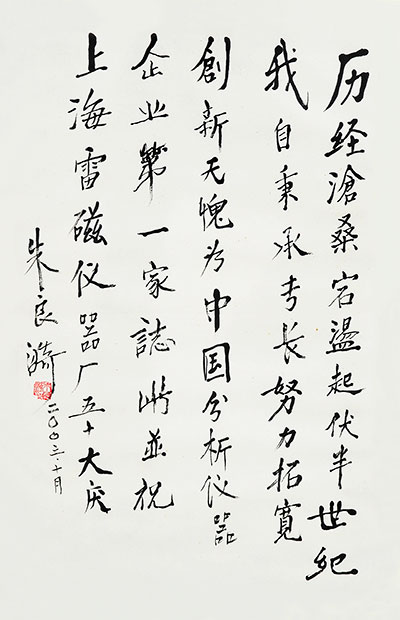 历经滄桑宕盪起伏半世纪
我自秉承专长努力拓寬
創新无愧为中国分析仪器
企业第一家誌並祝
上海雷磁仪器厂五十大庆
朱良漪
二〇〇三.十月